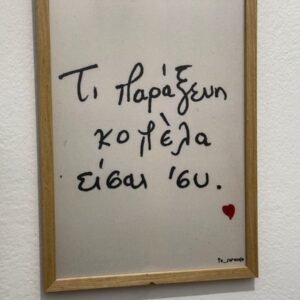 Τι παράξενη
κοπέλα
είσαι 'συ.